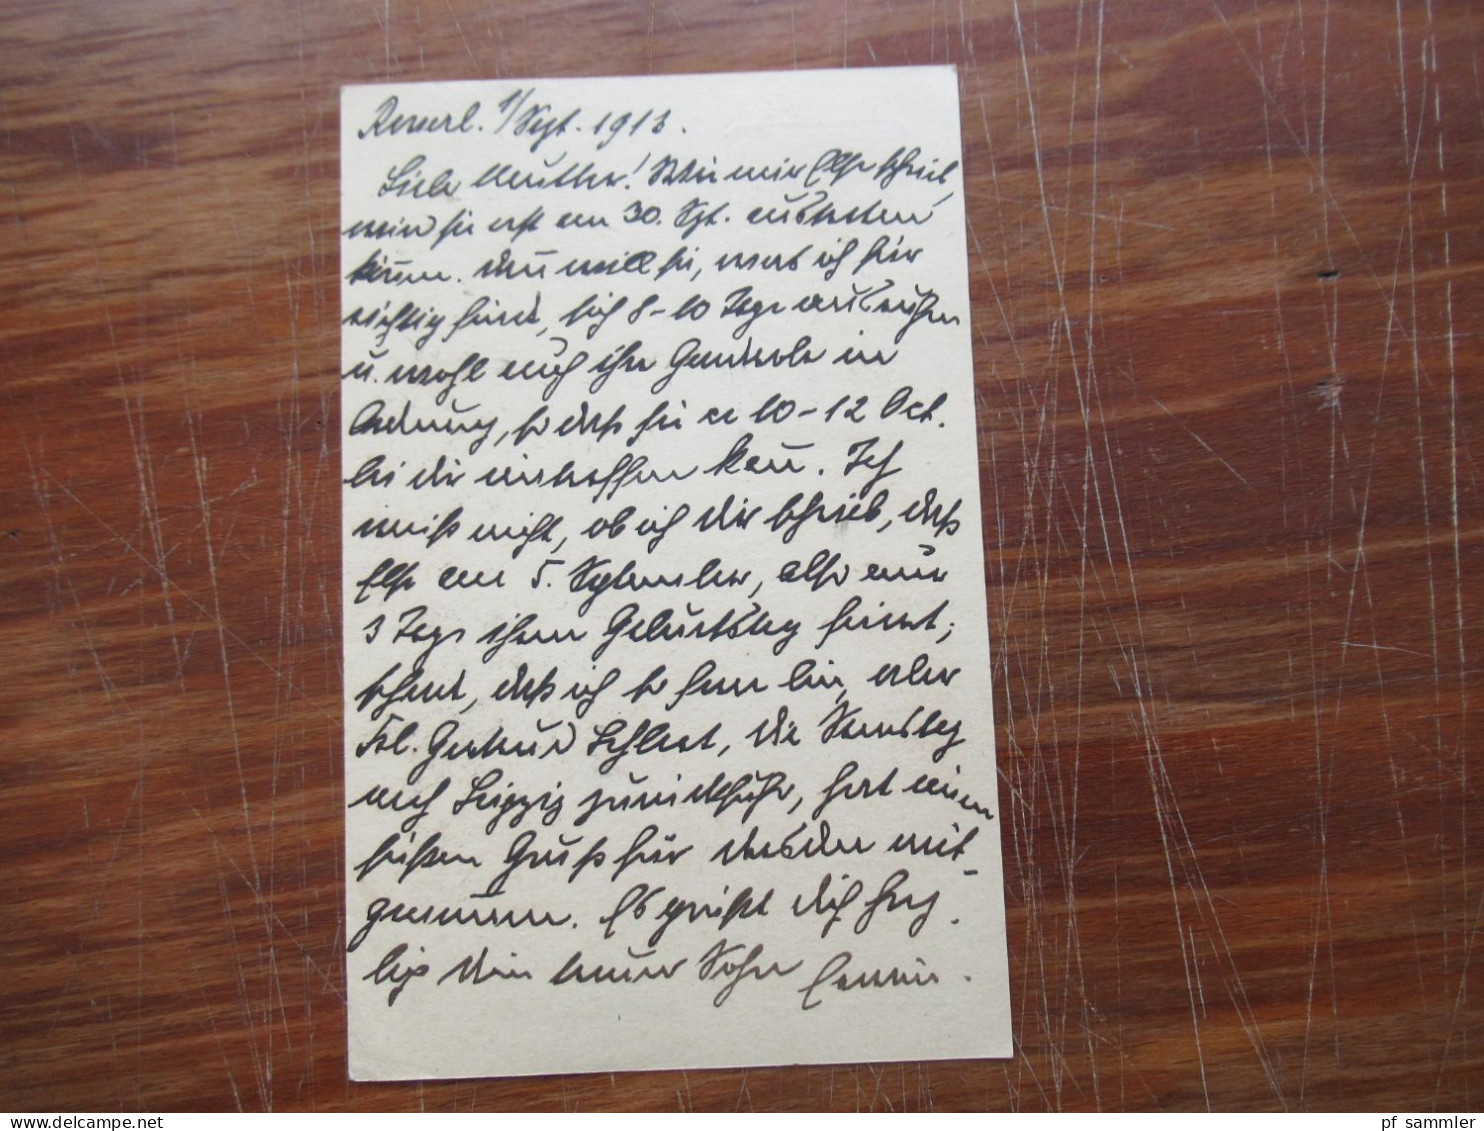 1/ Sept. 1913.
Liebe Mutter! Wie mir Else schrieb,
wird sie erst am 30. Spt. austreten
können. Nun will sie, was ich für
richtig finde, sich 8-10 Tage ausruhen
u. wohl auch ihre Garderobe in
Ordnung, so daß sie ca 10-12 Oct.
bei dir eintreffen kann. Ich
weiß nicht, ob ich dir schrieb, daß
Else am 5. September, also nur
3 Tage ihren Geburtstag feiert;
schade, daß ich so fern bin, aber
Frl. Gertrud Schlert, die Samstag
nach Leipzig zurückfuhr, hat einen
süßen Gruß für das mit
genommen. Es grüßt dich herz-
lich dein treuer Sohn Erwin.
pf_sammler